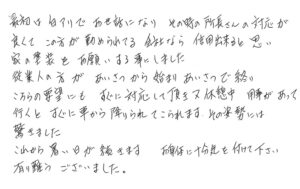 最初は白アリでお世話になり その時の所長さんの対応が
良くて この方が勤められてる会社なら 信用出来ると思い
家の塗装をお願いする事にしました
従業員の方があいさつから始まりあいさつで終り
こちらの要望にもすぐに対応して頂き又休憩中用事があって
行くとすぐに車から降りられてこられます。その姿勢には
驚きました
これから暑い日が続きます 身体に気を付けて下さい
有り難うございました。